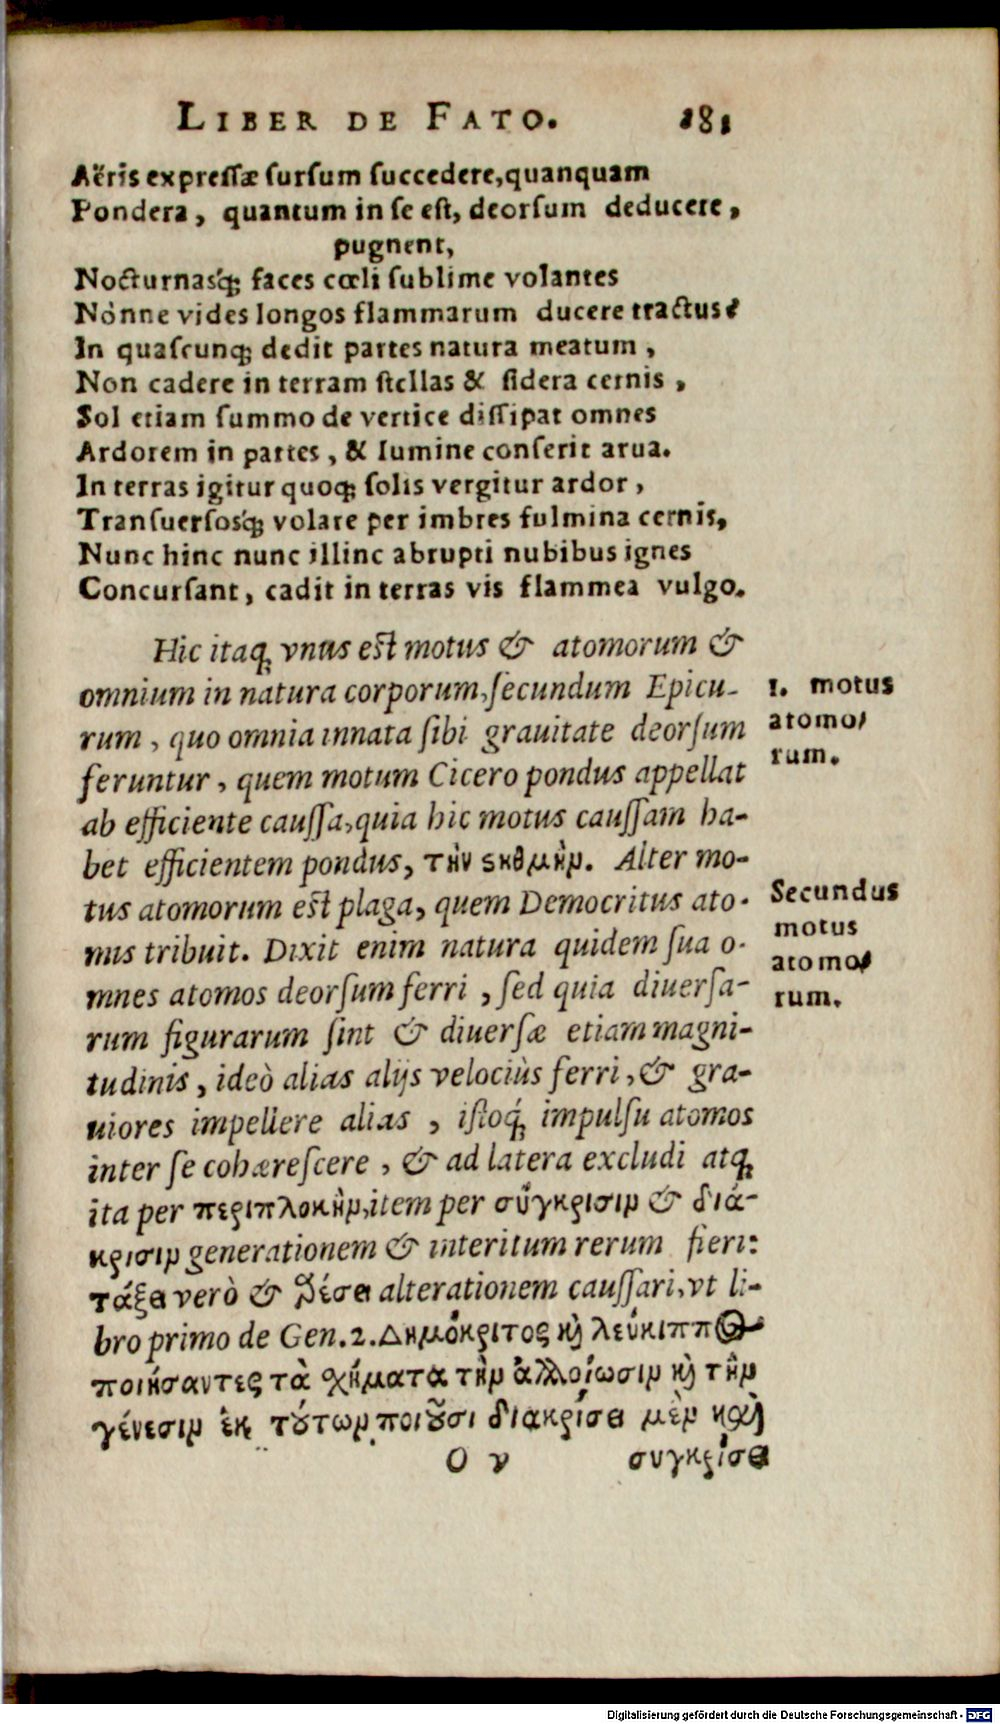 LIBER DE FATO. 181
Aëris expressæ sursum succedere, quanquam
Pondera, quantum in se est, deorsum deducere,
pugnent,
Nocturnasq́; faces cœli sublime volantes
Nònne vides longos flammarum ducere tractus?
In quascunq; dedit partes natura meatum,
Non cadere in terram stellas & sidera cernis,
Sol etiam summo de vertice dissipat omnes
Ardorem in partes, & lumine conserit arua.
In terras igitur quoq; solis vergitur ardor,
Transuersosq́; volare per imbres fulmina cernis,
Nunc hinc nunc illinc abrupti nubibus ignes
Concursant, cadit in terras vis flammea vulgo.
Hic itaq; vnus est motus & atomorum &
omnium in natura corporum, secundum Epicu-
rum, quo omnia innata sibi grauitate deorsum
feruntur, quem motum Cicero pondus appellat
ab efficiente caussa, quia hic motus caussam ha-
bet efficientem pondus, τὴν ϛαθμὴν. Alter mo-
tus atomorum est plaga, quem Democritus ato-
mis tribuit. Dixit enim natura quidem sua o-
mnes atomos deorsum ferri, sed quia diuersa-
rum figurarum sint & diuersæ etiam magni-
tudinis, ideò alias alijs velociùs ferri, & gra-
uiores impellere alias, istoq́; impulsu atomos
inter se cohærescere, & ad latera excludi atq;
ita per περιπλοκὴν, item per σύγκρισιν & διά-
κρισιν generationem & interitum rerum fieri:
τάξει verò & θέσει alterationem caussari, vt li-
bro primo de Gen. 2. Δημόκριτος κỳ λεύκιππος
ποιήσαντες τὰ χήματα τὴν ἀλλοίωσιν κỳ τὴν
γένεσιν ἐκ τȣ́των ποιοῦσι διακρίσει μὲν καὶ
O v συγκρίσει
1. motus
atomo-
rum.
Secundus
motus
atomo-
rum.
Digitalisierung gefördert durch die Deutsche Forschungsgemeinschaft - DFG